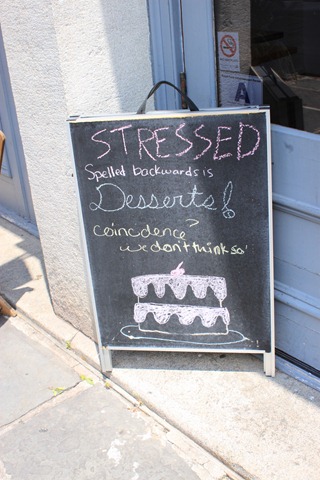 STRESSED
Spelled backwards is
Desserts!
coincidence?
we don't think so!
A